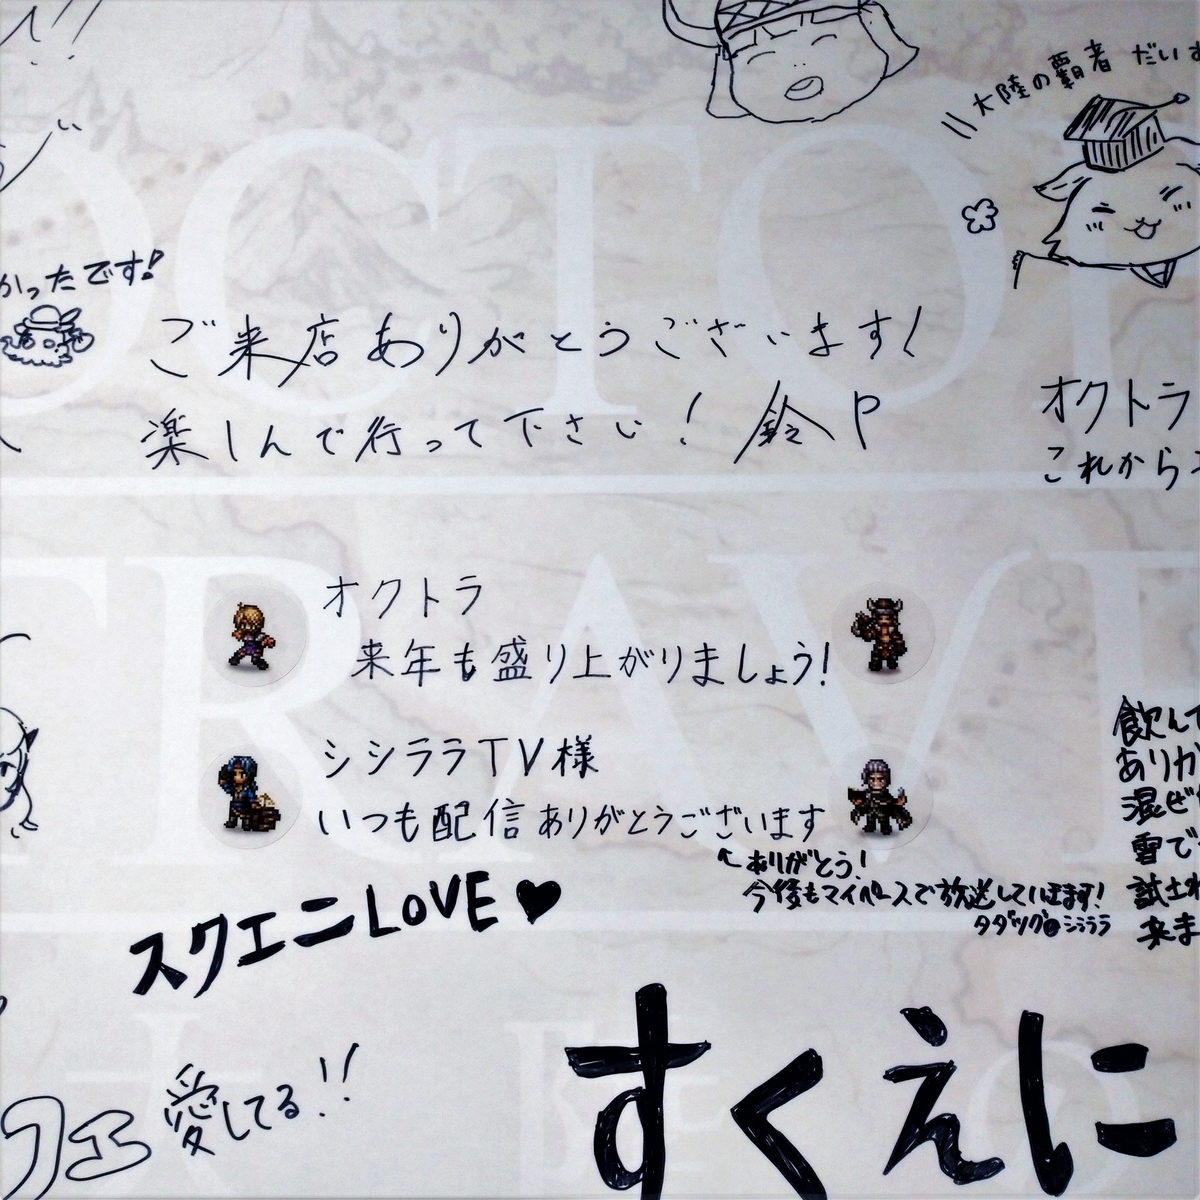 大陸の覇者 だい
かったです!
ご来店ありがとうございます!
楽しんで行って下さい! 鈴P
オクトラ
これから
オクトラ
来年も盛り上がりましょう!
シシララTV様
いつも配信ありがとうございます
ありがとう!
今後もマイペースで放送していきます!
タダツグ@シシララ
飲んで
ありが
混ぜ
雪で
試
来ま
スクエニLOVE♥
すくえに
フェ 愛してる!!
OCTOP
TRAVE